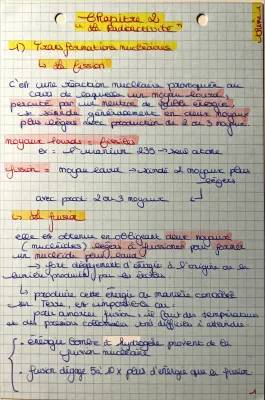 Chapitre 2
"La Radioactivité"
1) Transformations nucléaires
↳ La fission
C'est une réaction nucléaire provoquée au
cours de laquelle un noyau lourd,
percuté par un neutron de faible énergie
se scinde généralement en deux noyaux
plus légers avec production de 2 ou 3 noyaux.
noyaux lourds = fissiles
ex = l'uranium 235 →
fission = noyau lourd → scindé 2 noyaux plus
légers
avec prod 2 ou 3 noyaux
↳ La fusion
elle est obtenue en obligeant deux noyaux
(nucléides) légers à fusionner pour former
un nucléide plus lourd
→ fort dégagement d'énergie à l'origine de la
lumière produite par les étoiles
↳ produire cette énergie de manière contrôlée
sur Terre, est impossible car
pour amorcer fusion = il faut des températures
et des pressions très difficiles à atteindre
• énergie bombe à hydrogène provient de la
fusion nucléaire
• fusion dégage 5 à 10 x plus d'énergie que la fission
1